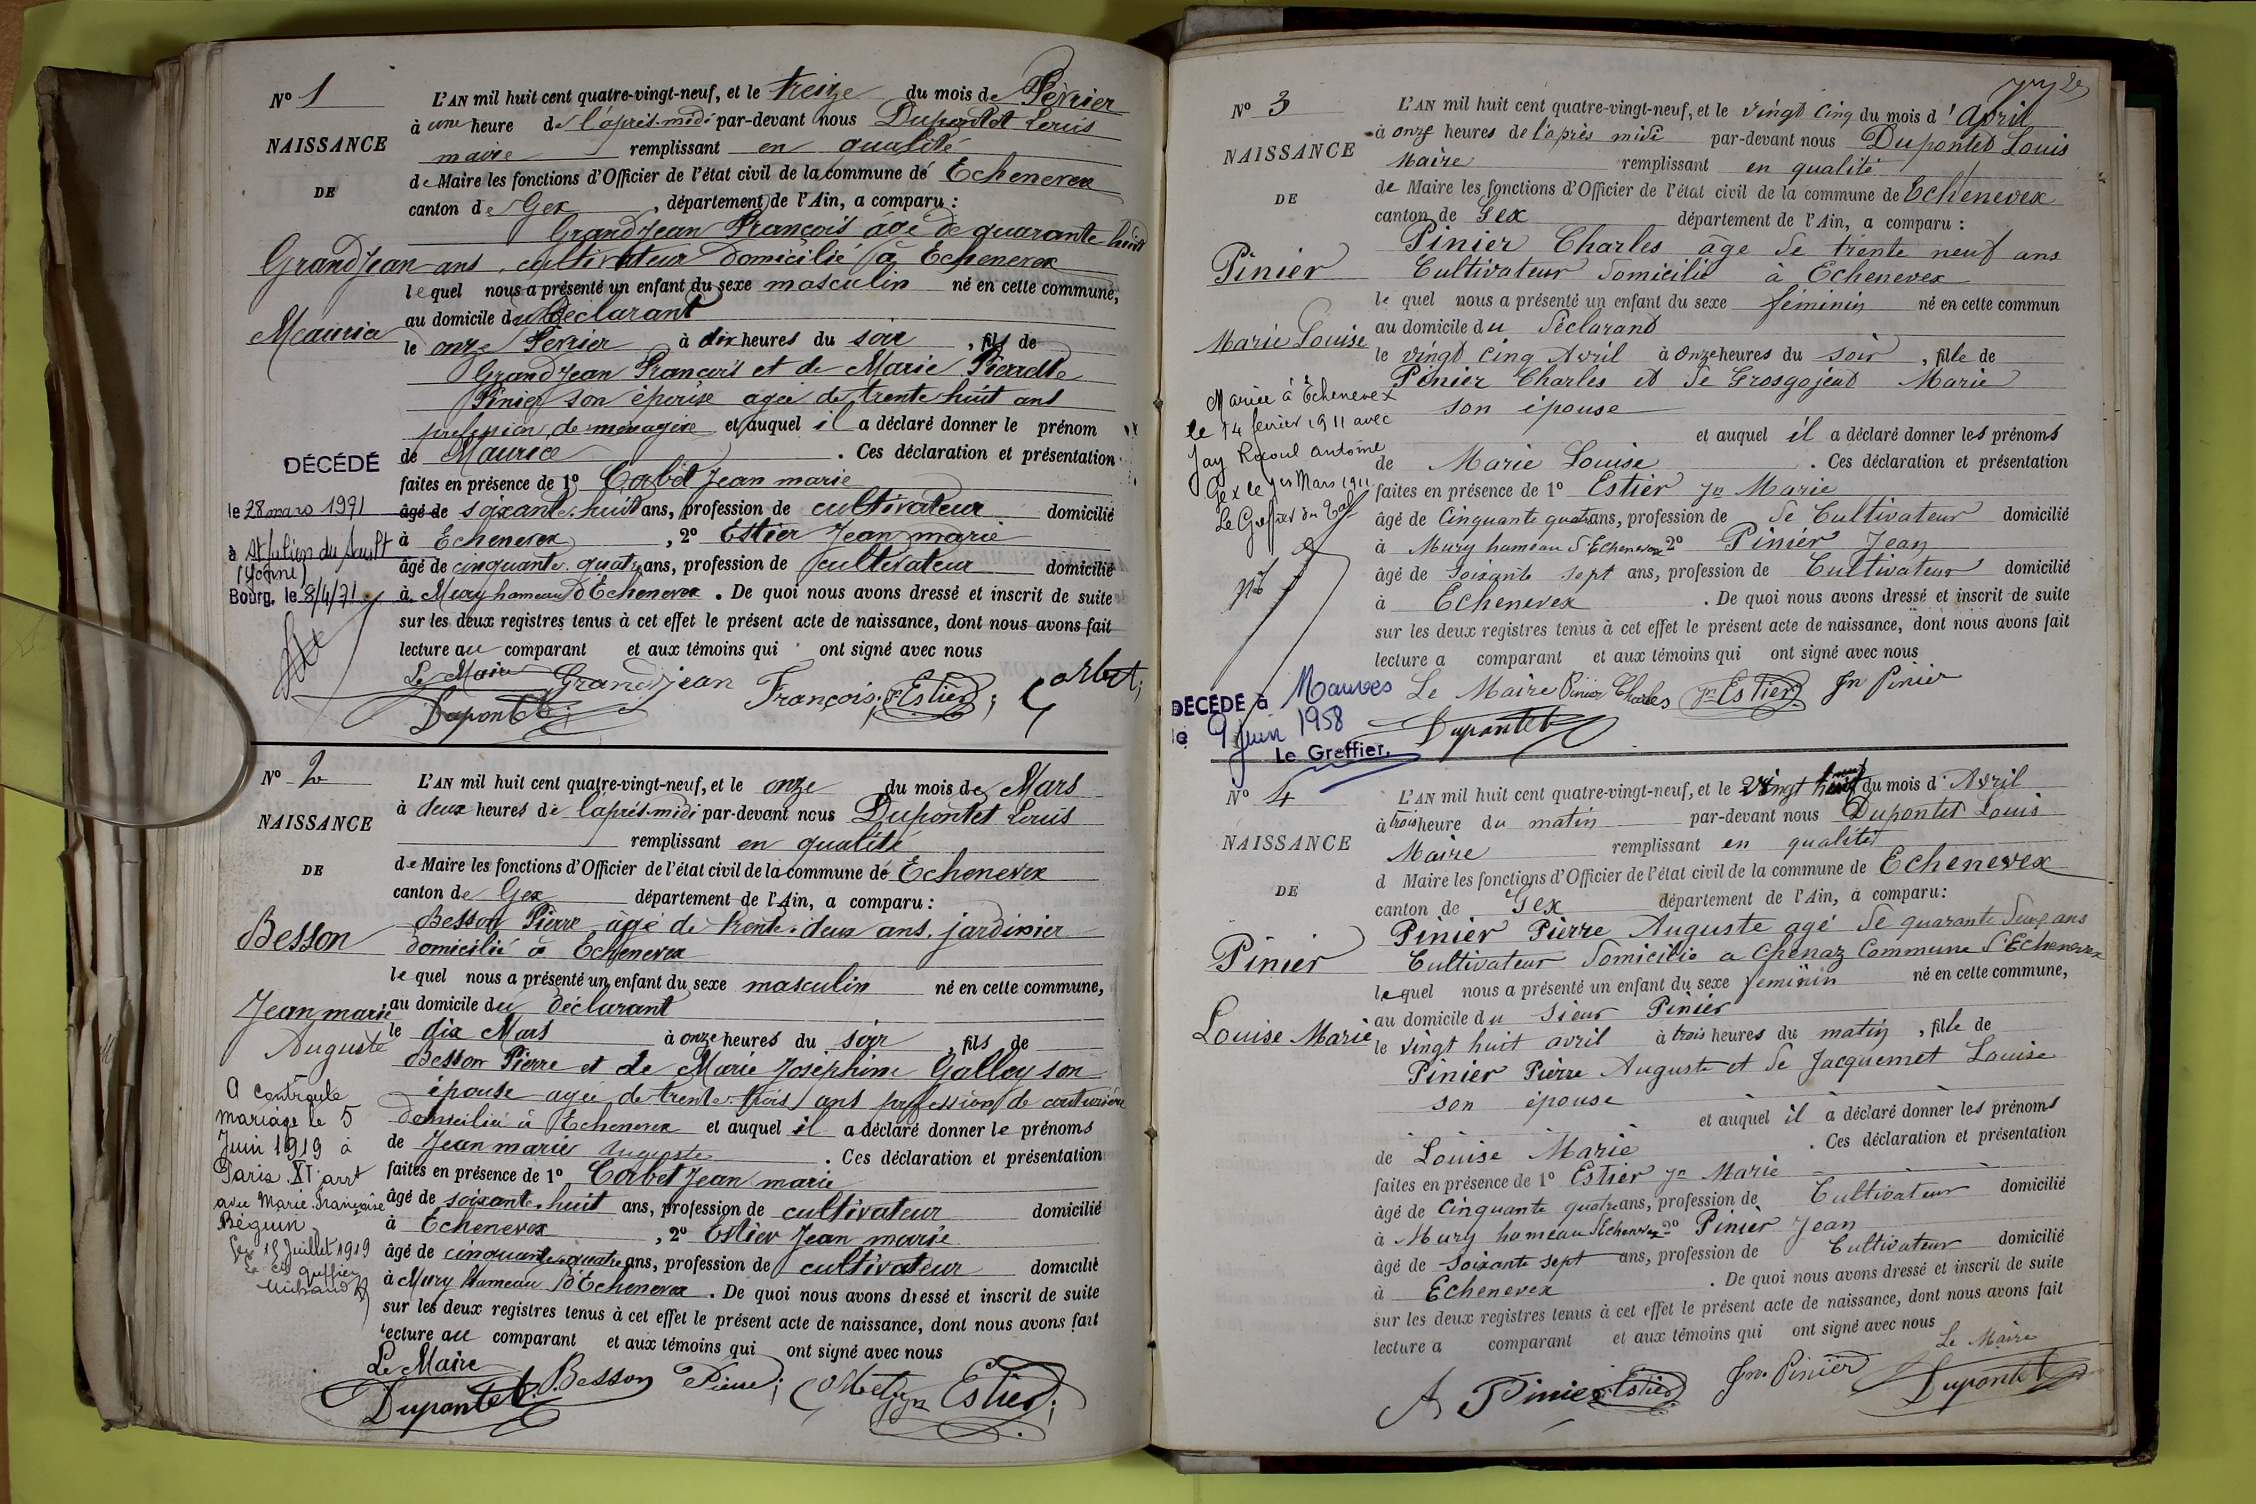 No 1
NAISSANCE
DE
Grandjean
Mauricia
DÉCÉDÉ
le 28 mars 1971
à St Julien du Sault
(Yonne)
Bourg, le 8/4/71
L'AN mil huit cent quatre-vingt-neuf, et le treize du mois de Février
à une heure de l'après-midi par-devant nous Dupontet Louis
maire remplissant en qualité
de Maire les fonctions d'Officier de l'état civil de la commune de Echenevex
canton de Gex, département de l'Ain, a comparu :
Grandjean François âgé de quarante-huit
ans, cultivateur domicilié à Echenevex
lequel nous a présenté un enfant du sexe masculin né en cette commune,
au domicile du Déclarant
le onze Février à dix heures du soir, fils de
Grandjean François et de Marie Pierrette
Pinier son épouse agée de trente huit ans
profession de ménagère et auquel il a déclaré donner le prénom
de Maurice. Ces déclaration et présentation
faites en présence de 1º Corbet Jean marie
âgé de soixante-huit ans, profession de cultivateur domicilié
à Echenevex, 2º Estier Jean marie
âgé de cinquante-quatre ans, profession de cultivateur domicilié
à Mury hameau d'Echenevex. De quoi nous avons dressé et inscrit de suite
sur les deux registres tenus à cet effet le présent acte de naissance, dont nous avons fait
lecture au comparant et aux témoins qui ont signé avec nous
Le Maire Grandjean François; Jn Estier; Corbet;
Dupontet;
No 2
NAISSANCE
DE
Besson
Jean marie
Auguste
A contracté
mariage le 5
Juin 1919 à
Paris XIe arrt
avec Marie Françoise
Béguin
Gex 15 Juillet 1919
L'AN mil huit cent quatre-vingt-neuf, et le onze du mois de Mars
à deux heures de l'après-midi par-devant nous Dupontet Louis
remplissant en qualité
de Maire les fonctions d'Officier de l'état civil de la commune de Echenevex
canton de Gex département de l'Ain, a comparu :
Besson Pierre âgé de trente-deux ans, jardinier
domicilié à Echenevex
lequel nous a présenté un enfant du sexe masculin né en cette commune,
au domicile du déclarant
le dix Mars à onze heures du soir, fils de
Besson Pierre et de Marie Joséphine Gallay son
épouse agée de trente-trois ans profession de couturière
domiciliée à Echenevex et auquel il a déclaré donner le prénoms
de Jean marie Auguste. Ces déclaration et présentation
faites en présence de 1º Corbet Jean marie
âgé de soixante-huit ans, profession de cultivateur domicilié
à Echenevex, 2º Estier Jean marie
âgé de cinquante-quatre ans, profession de cultivateur domicilié
à Mury hameau d'Echenevex. De quoi nous avons dressé et inscrit de suite
sur les deux registres tenus à cet effet le présent acte de naissance, dont nous avons fait
lecture au comparant et aux témoins qui ont signé avec nous
Le Maire
Dupontet. Besson Pierre; Corbet Jn Estier;
2
No 3
NAISSANCE
DE
Pinier
Marie Louise
Mariée à Echenevex
le 14 février 1911 avec
Jay Raoul Antoine
Gex le 1er Mars 1911
Le Greffier du
DÉCÉDÉ à Mauves
le 9 Juin 1958
Le Greffier.
L'AN mil huit cent quatre-vingt-neuf, et le vingt cinq du mois d'April
à onze heures de l'après midi par-devant nous Dupontet Louis
Maire remplissant en qualité
de Maire les fonctions d'Officier de l'état civil de la commune de Echenevex
canton de Gex département de l'Ain, a comparu :
Pinier Charles age de trente neuf ans
Cultivateur domicilié à Echenevex
le quel nous a présenté un enfant du sexe féminin né en cette commun
au domicile du déclarant
le vingt cinq Avril à onze heures du soir, fille de
Pinier Charles et de Grosgojeat Marie
son épouse
et auquel il a déclaré donner les prénoms
de Marie Louise. Ces déclaration et présentation
faites en présence de 1º Estier Jn Marie
âgé de Cinquante quatre ans, profession de de Cultivateur domicilié
à Mury hameau d'Echenevex 2º Pinier Jean
âgé de soixante sept ans, profession de Cultivateur domicilié
à Echenevex. De quoi nous avons dressé et inscrit de suite
sur les deux registres tenus à cet effet le présent acte de naissance, dont nous avons fait
lecture a comparant et aux témoins qui ont signé avec nous
Le Maire Pinier Charles Jn Estier Jn Pinier
Dupontet
No 4
NAISSANCE
DE
Pinier
Louise Marie
L'AN mil huit cent quatre-vingt-neuf, et le vingt huit du mois d'Avril
à trois heure du matin par-devant nous Dupontet Louis
Maire remplissant en qualité
d Maire les fonctions d'Officier de l'état civil de la commune de Echenevex
canton de Gex département de l'Ain, a comparu:
Pinier Pierre Auguste agé de quarante deux ans
Cultivateur domicilié a Chenaz Commune d'Echenevex
lequel nous a présenté un enfant du sexe féminin né en cette commune,
au domicile du sieur Pinier
le vingt huit avril à trois heures du matin, fille de
Pinier Pierre Auguste et de Jacquemet Louise
son épouse
et auquel il a déclaré donner les prénoms
de Louise Marie. Ces déclaration et présentation
faites en présence de 1º Estier Jn Marie
âgé de Cinquante quatre ans, profession de Cultivateur domicilié
à Mury hameau d'Echenevex 2º Pinier Jean
âgé de soixante sept ans, profession de Cultivateur domicilié
à Echenevex. De quoi nous avons dressé et inscrit de suite
sur les deux registres tenus à cet effet le présent acte de naissance, dont nous avons fait
lecture a comparant et aux témoins qui ont signé avec nous
Le Maire
A Pinier Estier Jn. Pinier Dupontet